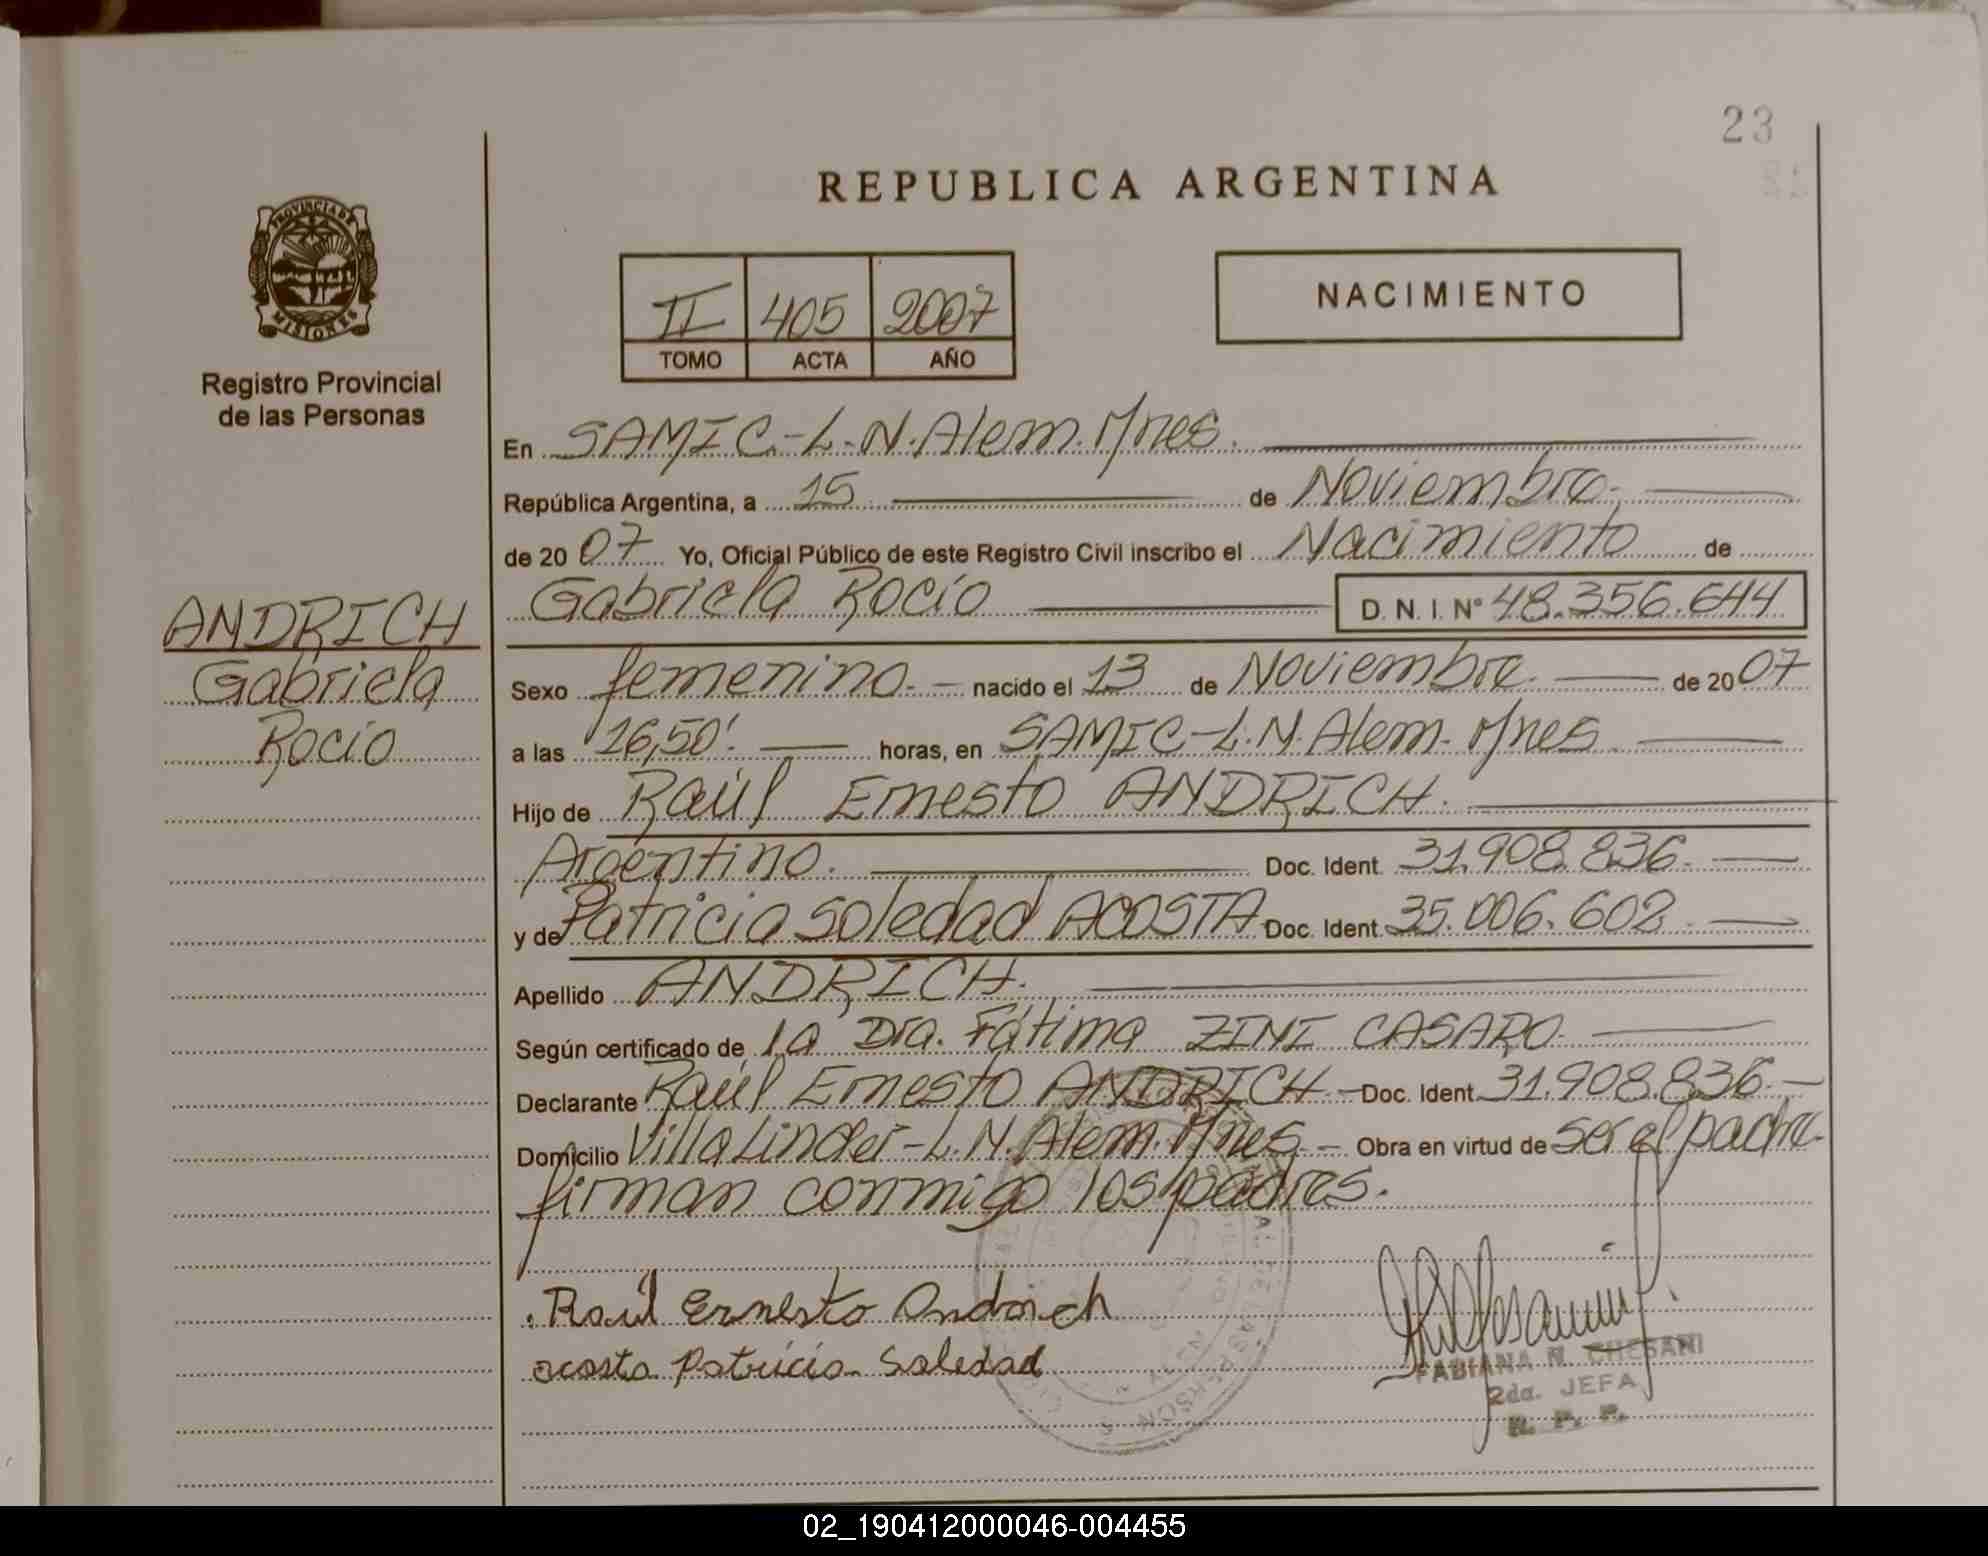 23
REPUBLICA ARGENTINA
PROVINCIA DE
MISIONES
Registro Provincial
de las Personas
II 405 2007
TOMO ACTA AÑO
NACIMIENTO
En SAMIC.-L.N.Alem.Mnes.
República Argentina, a 15 de Noviembre.
de 2007 Yo, Oficial Público de este Registro Civil inscribo el Nacimiento de
Gabriela Rocío D. N. I. N° 48.356.644
ANDRICH
Gabriela
Rocío
Sexo femenino. nacido el 13 de Noviembre. de 2007
a las 16,50'. horas, en SAMIC-L.N.Alem. Mnes
Hijo de Raúl Ernesto ANDRICH.
Argentino. Doc. Ident. 31.908.836.
y de Patricia Soledad ACOSTA Doc. Ident. 35.006.602.
Apellido ANDRICH.
Según certificado de la Dra. Fátima ZINI CASARO.
Declarante Raúl Ernesto ANDRICH.- Doc. Ident. 31.908.836.-
Domicilio Villa Linder-L.N.Alem.Mnes.- Obra en virtud de ser el padre.
firman conmigo los padres.
Raúl Ernesto Andrich
acosta Patricia Soledad
FABIANA N. CHESANI
2da. JEFA
R. P. P.
02_190412000046-004455